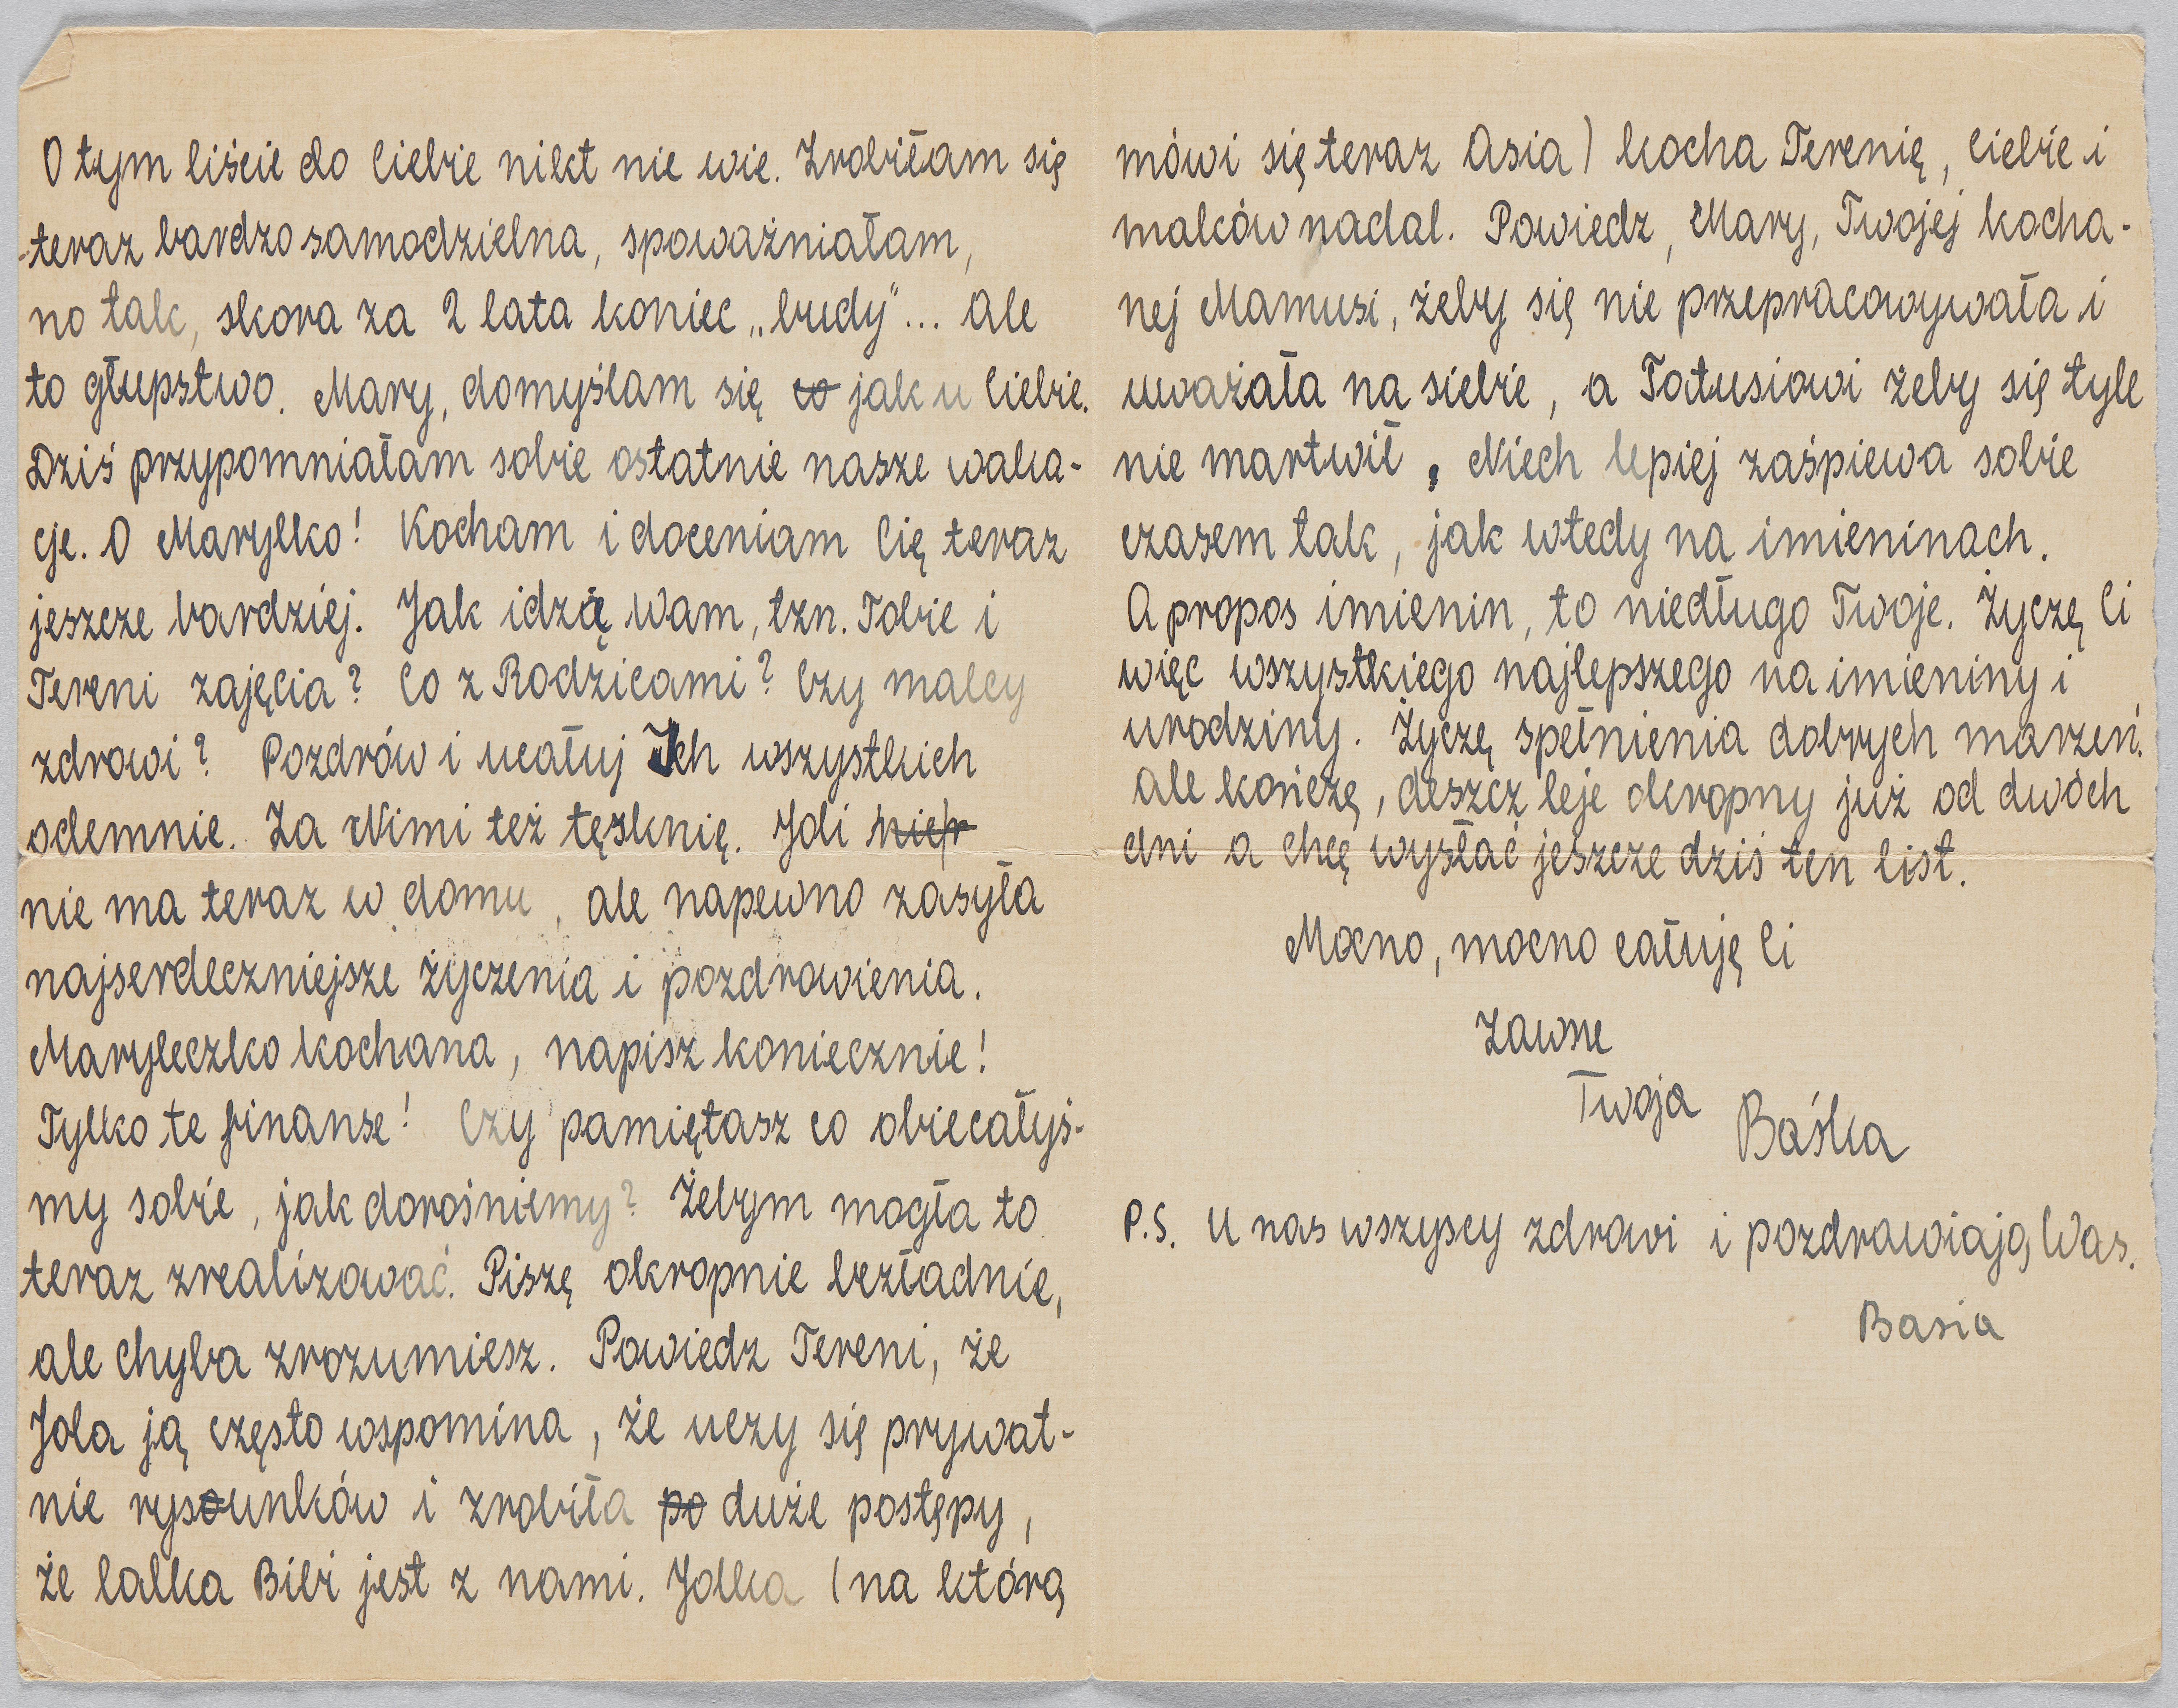 O tym liście do Ciebie nikt nie wie. Zrobiłam się
teraz bardzo samodzielna, spoważniałam,
no tak, skora za 2 lata koniec „budy"... Ale
to głupstwo. Mary, domyślam się co jak u Ciebie.
Dziś przypomniałam sobie ostatnie nasze waka-
cje. O Marylko! Kocham i doceniam Cię teraz
jeszcze bardziej. Jak idzie Wam, tzn. Tobie i
Tereni zajęcia? Co z Rodzicami? Czy malcy
zdrowi? Pozdrów i ucałuj Ich wszystkich
odemnie. Za Nimi też tęsknię. Joli
nie ma teraz w domu, ale napewno zasyła
najserdeczniejsze życzenia i pozdrowienia.
Maryleczko kochana, napisz koniecznie!
Tylko te finanse! Czy pamiętasz co obiecałyś-
my sobie, jak dorośniemy? Żebym mogła to
teraz zrealizować. Piszę okropnie bezładnie,
ale chyba zrozumiesz. Powiedz Tereni, że
Jola ją często wspomina, że uczy się prywat-
nie rysounków i zrobiła po duże postępy,
że lalka Bibi jest z nami. Jolka (na którą
mówi się teraz Asia) kocha Terenię, Ciebie i
malców nadal. Powiedz, Mary, Twojej kocha-
nej Mamusi, żeby się nie przepracowywała i
uważała na siebie, a Tatusiowi żeby się tyle
nie martwił. Niech lepiej zaśpiewa sobie
czasem tak, jak wtedy na imieninach.
A propos imienin, to niedługo Twoje. Życzę Ci
więc wszystkiego najlepszego na imieniny i
urodziny. Życzę spełnienia dobrych marzeń.
Ale kończę, deszcz leje okropny już od dwóch
dni a chcę wysłać jeszcze dziś ten list.
Mocno, mocno całuję Ci
Zawsze
Twoja Baśka
P.S. U nas wszyscy zdrowi i pozdrawiają Was.
Basia